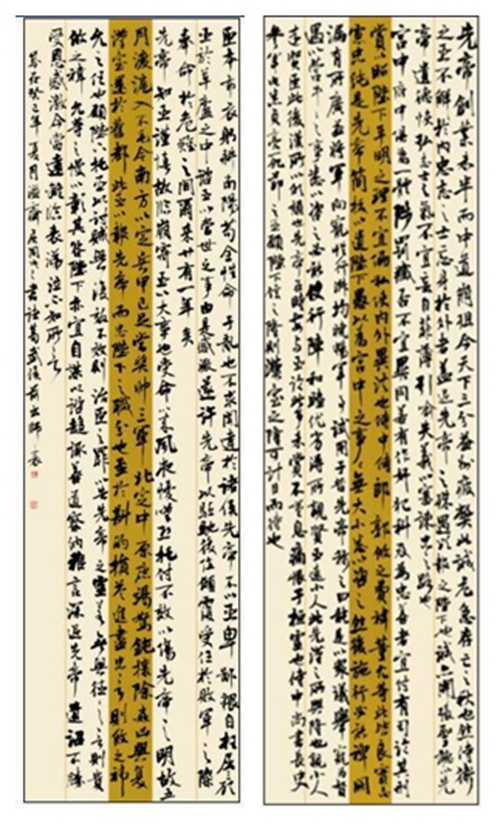 先帝創業未半而中道崩殂今天下三分益州疲弊此誠危急存亡之秋也然侍衛
之臣不懈於內忠志之士忘身於外者蓋追先帝之殊遇欲報之陛下也誠宜開張聖聽以光先
帝遺德恢弘志士之氣不宜妄自菲薄引喻失義以塞忠諫之路也
宮中府中俱為一體陟罰臧否不宜異同若有作奸犯科及為忠善者宜付有司論其刑
賞以昭陛下平明之理不宜偏私使內外異法也侍中侍郎郭攸之費禕董允等此皆良實志
慮忠純是以先帝簡拔以遺陛下愚以為宮中之事事無大小悉以咨之然後施行必能裨補闕
漏有所廣益將軍向寵性行淑均曉暢軍事試用于昔日先帝稱之曰能是以眾議舉寵為督
愚以為營中之事悉以咨之必能使行陣和睦優劣得所親賢臣遠小人此先漢所以興隆也親小人
遠賢臣此後漢所以傾頹也先帝在時每與臣論此事未嘗不嘆息痛恨于桓靈也侍中尚書長史
參軍此悉貞亮死節之臣也願陛下親之信之則漢室之隆可計日而待也
臣本布衣躬耕南陽苟全性命于亂世不求聞達於諸侯先帝不以臣卑鄙猥自枉屈三顧
臣於草廬之中諮臣以當世之事由是感激遂許先帝以驅馳後值傾覆受任於敗軍之際
奉命於危難之間爾來廿有一年矣
先帝知臣謹慎故臨崩寄臣以大事也受命以來夙夜憂嘆恐託付不效以傷先帝之明故五
月渡瀘深入不毛今南方已定兵甲已足當獎帥三軍北定中原庶竭駑鈍攘除姦凶興復
漢室還於舊都此臣所以報先帝而忠陛下之職分也至於斟酌損益進盡忠言則攸之禕
允之任也願陛下託臣以討賊興復之效不效則治臣之罪以告先帝之靈若無興德之言則責
攸之禕允等之慢以彰其咎陛下亦宜自謀以諮諏善道察納雅言深追先帝遺詔臣不勝
受恩感激今當遠離臨表涕泣不知所云
歲在癸巳年夏月書諸葛武侯前出師表